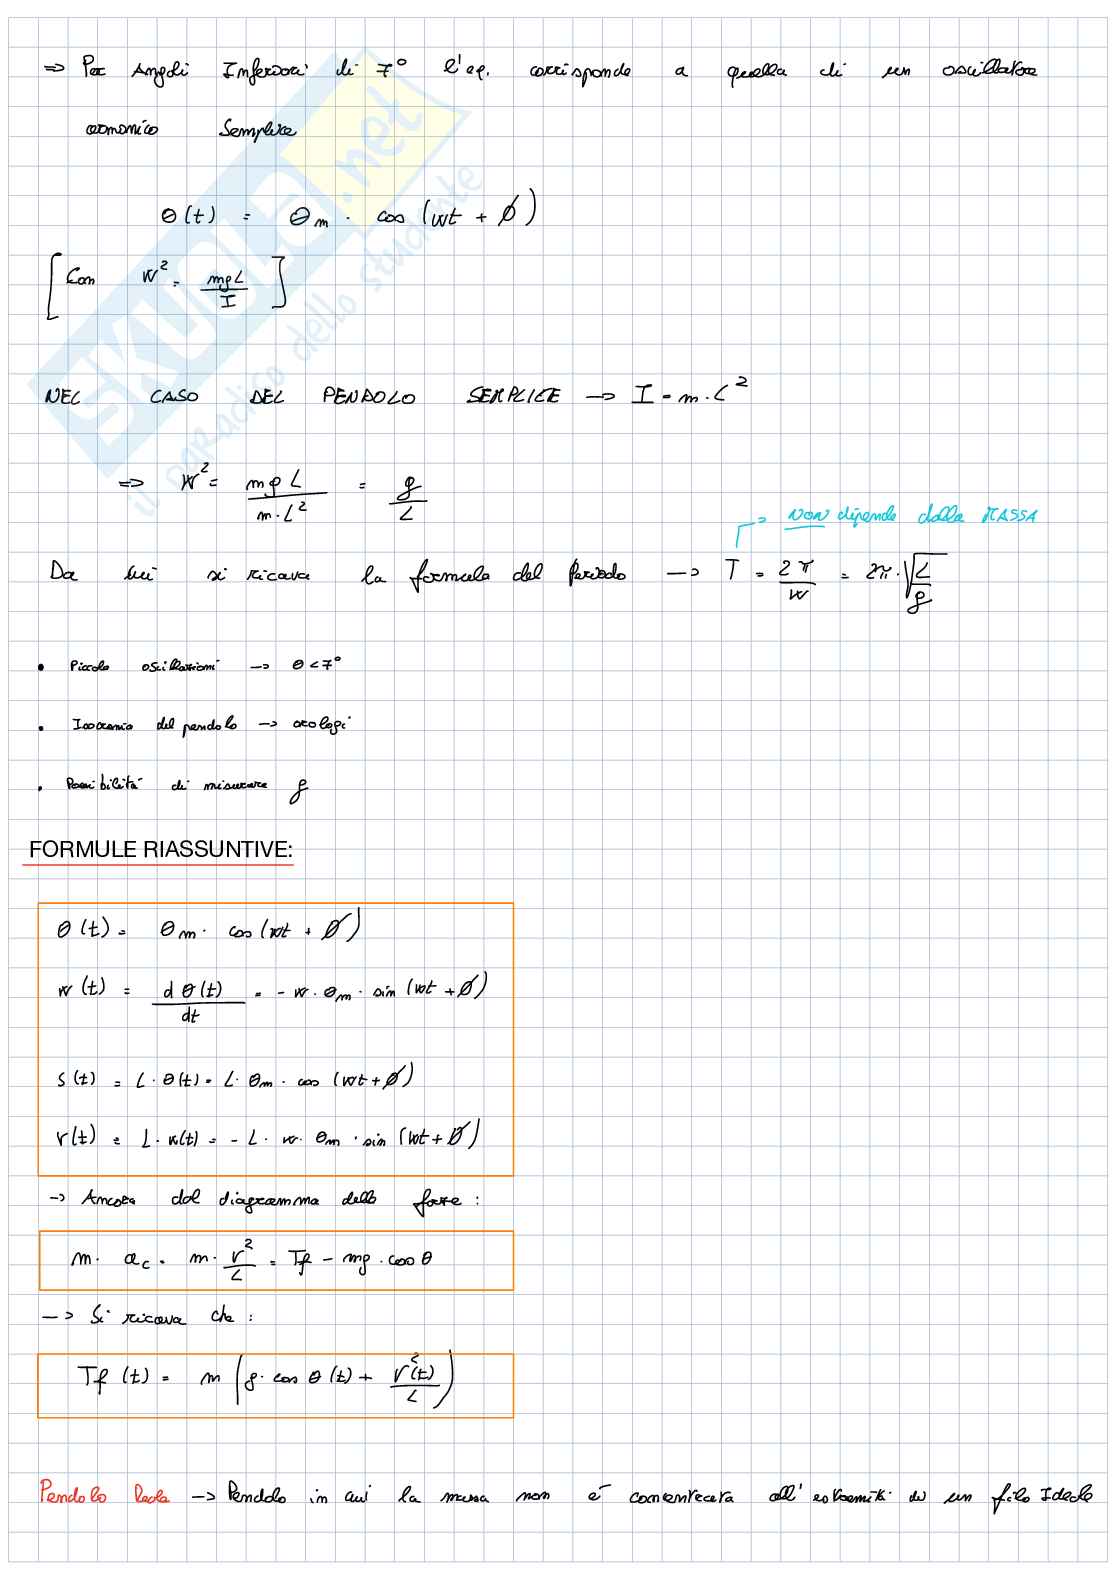 => Per Angoli Inferiori di 7° l'eq. corrisponde a quella di un oscillatore
armonico Semplice
θ(t) = θm · cos (wt + ø)
[Con w² = mgL / I]
NEL CASO DEL PENDOLO SEMPLICE -> I = m·L²
=> w² = mgL / m·L² = g / L
-> NON dipende dalla MASSA
Da cui si ricava la formula del Periodo -> T = 2π / w = 2π·√(L / g)
• Piccole oscillazioni -> θ<7°
• Isocronia del pendolo -> orologi
• Possibilità di misurare g
FORMULE RIASSUNTIVE:
θ(t) = θm · cos (wt + ø)
w(t) = d θ(t) / dt = - w · θm · sin (wt + ø)
s(t) = L · θ(t) = L · θm · cos (wt + ø)
v(t) = L · w(t) = - L · w · θm · sin (wt + ø)
-> Ancora dal diagramma delle forze :
m · ac = m · v² / L = Tf - mg · cos θ
-> Si ricava che :
Tf (t) = m (g · cos θ(t) + v²(t) / L)
Pendolo Reale -> Pendolo in cui la massa non é concentrata all'estremità di un filo Ideale
SKUOLA.net
il paradiso dello studente